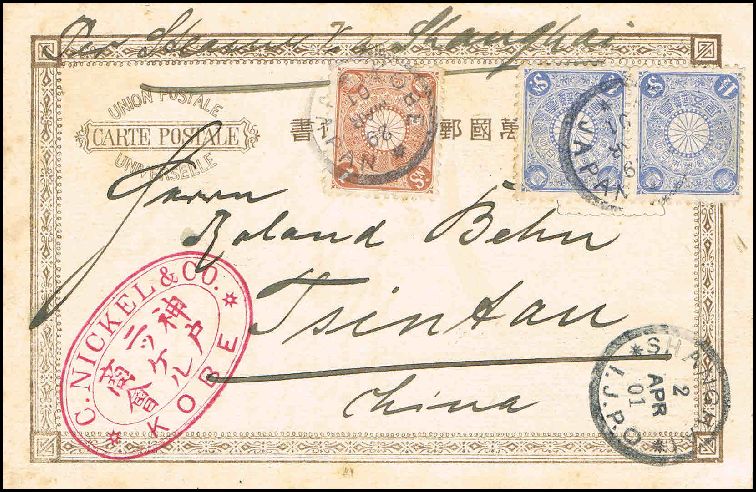 Per Steamer via Shanghai
UNION POSTALE
CARTE POSTALE
UNIVERSELLE
萬國郵 書
KOBE
29
MAR
01
JAPAN
JAPAN
Herrn
Roland Behn
Tsintau
China
C. NICKEL & CO.
神戸
ニッケル
商會
KOBE
SHANGHAI
2
APR
01
I.J.P.O